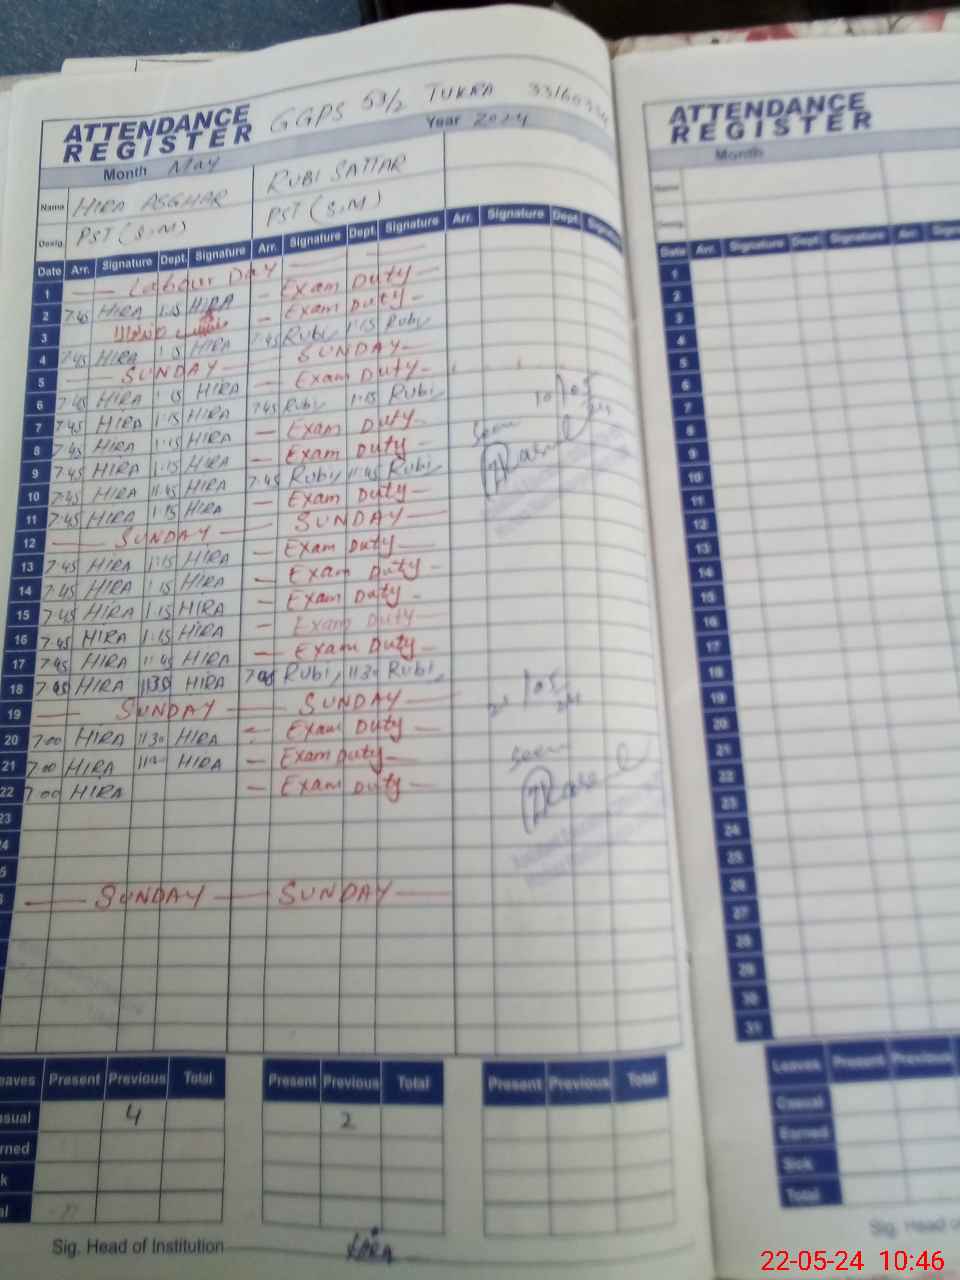 ATTENDANCE REGISTER GGPS 53/2 TUKRA
Month May Year 2024
Name HIRA ASGHAR RUBI SATTAR
Desig. PST (S.M) PST (S.M)
Date Arr. Signature Dept. Signature Arr. Signature Dept. Signature Arr. Signature Dept. Signature
1 — Labour Day —
2 7:45 HIRA 1:15 HIRA — Exam Duty —
3 — Exam Duty —
4 7:45 HIRA 1:15 HIRA 7:45 Rubi 1:15 Rubi
5 — SUNDAY — SUNDAY —
6 7:45 HIRA 1:15 HIRA — Exam Duty —
7 7:45 HIRA 1:15 HIRA 7:45 Rubi 1:15 Rubi
8 7:45 HIRA 1:15 HIRA — Exam Duty —
9 7:45 HIRA 1:15 HIRA — Exam Duty —
10 7:45 HIRA 11:45 HIRA 7:45 Rubi 11:45 Rubi
11 7:45 HIRA 1:15 HIRA — Exam Duty —
12 — SUNDAY — SUNDAY —
13 7:45 HIRA 1:15 HIRA — Exam Duty —
14 7:45 HIRA 1:15 HIRA — Exam Duty —
15 7:45 HIRA 1:15 HIRA — Exam Duty —
16 7:45 HIRA 1:15 HIRA — Exam Duty —
17 7:45 HIRA 11:45 HIRA — Exam Duty —
18 HIRA 1130 HIRA Rubi 1130 Rubi
19 — SUNDAY — SUNDAY —
20 7:00 HIRA 1130 HIRA — Exam Duty —
21 7:00 HIRA HIRA — Exam Duty —
22 7:00 HIRA — Exam Duty —
23
— SUNDAY — SUNDAY —
Seen
Seen
Present Previous Total Present Previous Total Present Previous Total
4 2
Sig. Head of Institution
ATTENDANCE REGISTER
Month
Name
Desig.
Date Arr. Signature Dept. Signature Arr.
1
2
3
4
5
6
7
8
9
10
11
12
13
14
15
16
17
18
19
20
21
22
23
24
25
26
27
28
29
30
31
Leaves Present Previous
Casual
Earned
Sick
Total
22-05-24 10:46